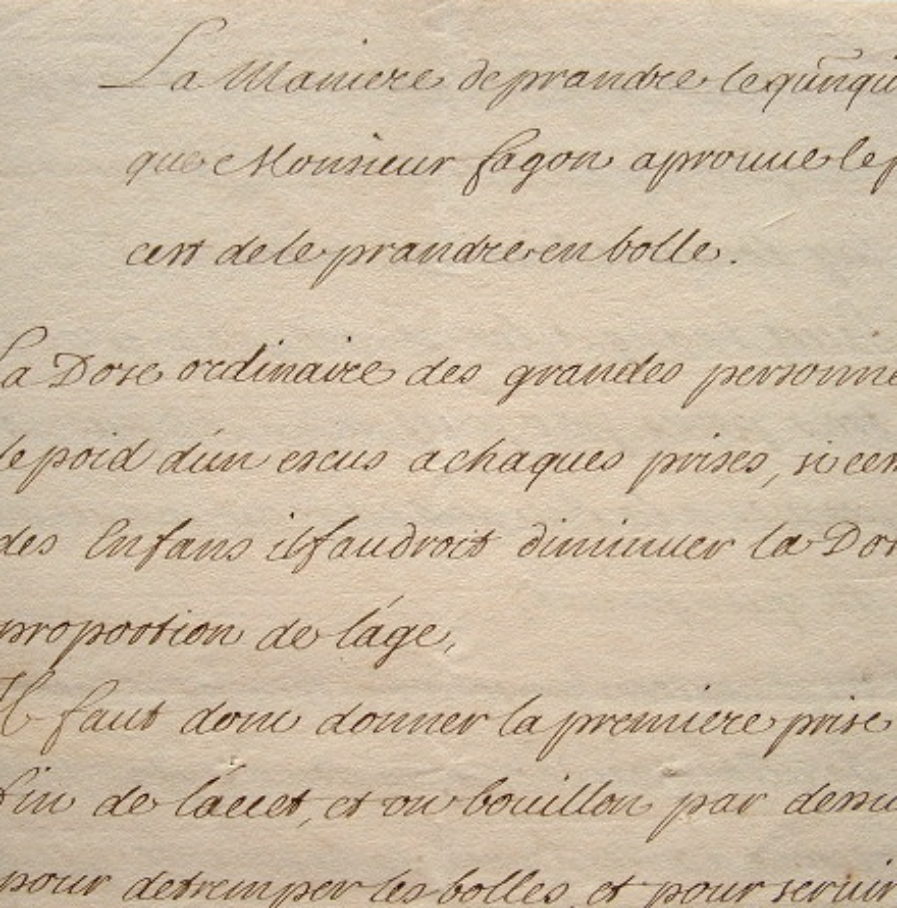 La Maniere de prandre le qūinqui
que Monsieur fagon aprouue le p
cert de le prandre en bolle.
La Dose ordinaire des grandes personne
le poid d'un escus a chaques prises, si ces
des Enfans il faudroit diminuer la Dos
proportion de l'age,
Il faut donc donner la premiere prise
fin de l'accet, et un bouillon par dessu
pour detremper les bolles, et pour seruir